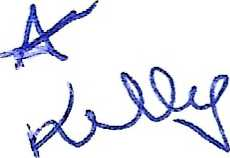 A
Kelly